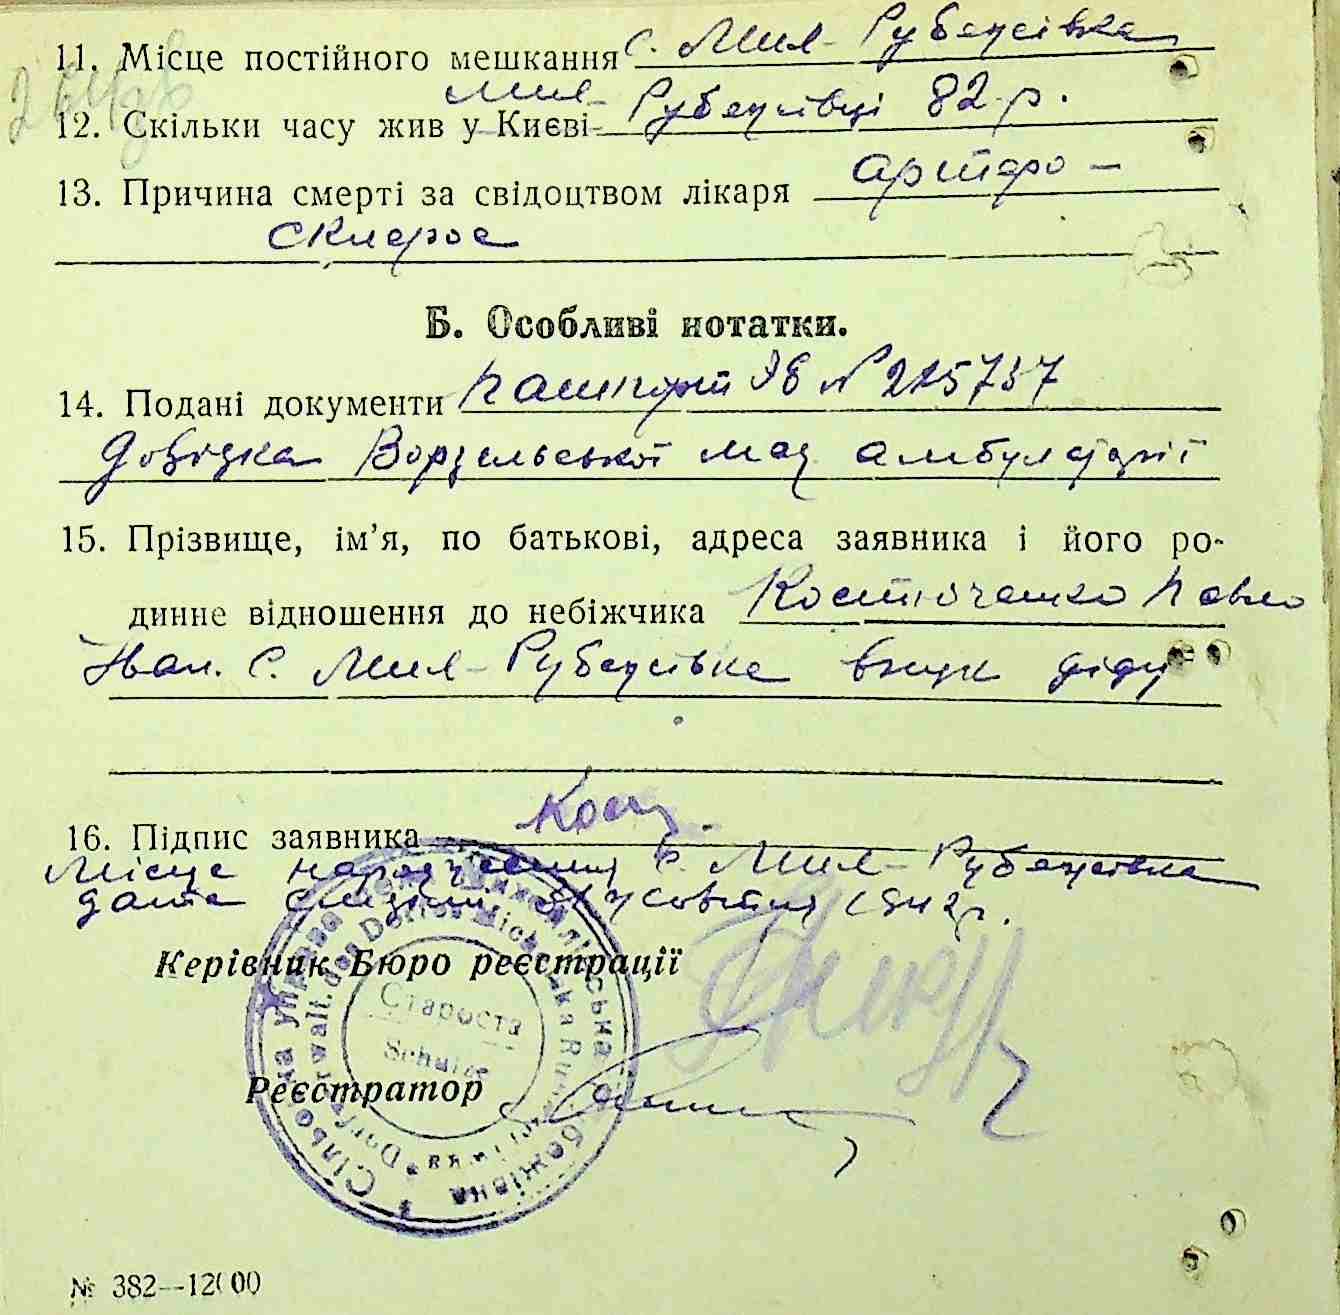 11. Місце постійного мешкання с. Мих-Рубежівка
Мих-
12. Скільки часу жив у Києві Рубежівці 82 р.
13. Причина смерті за свідоцтвом лікаря артеро-
склероз
Б. Особливі нотатки.
14. Подані документи пашпорт № 215737
Довідка Ворзельської мед амбулаторії
15. Прізвище, ім'я, по батькові, адреса заявника і його ро-
динне відношення до небіжчика Костюченко Павло
Іван. с. Мих-Рубежівка внук діду
16. Підпис заявника Кост
Місце народження с. Мих-Рубежівка
дата смерти жовтня 1942 р.
Керівник Бюро реєстрації
Староста
Schulze
Реєстратор
Сільська управа Михайлівська Рубежівка
№ 382—12000